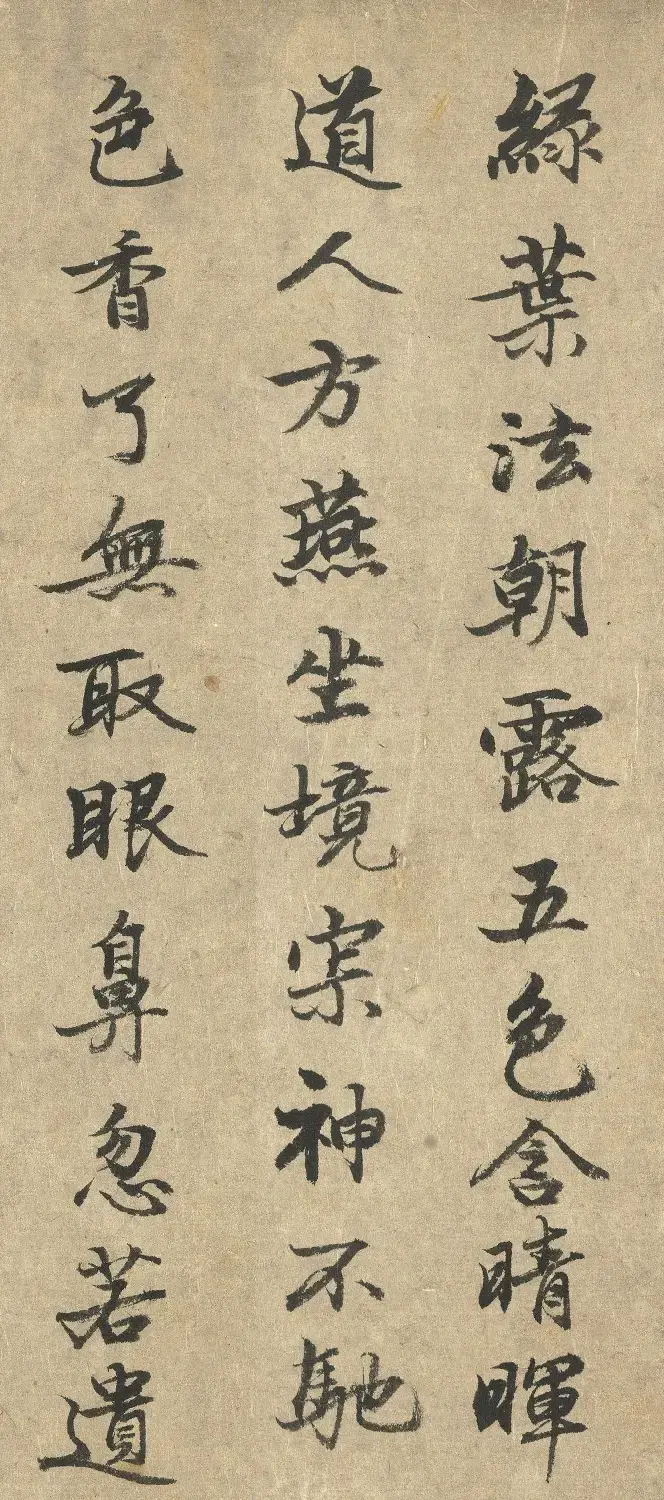 綠葉泫朝露五色含晴暉
道人方燕坐境寂神不馳
色香了無取眼鼻忽若遺